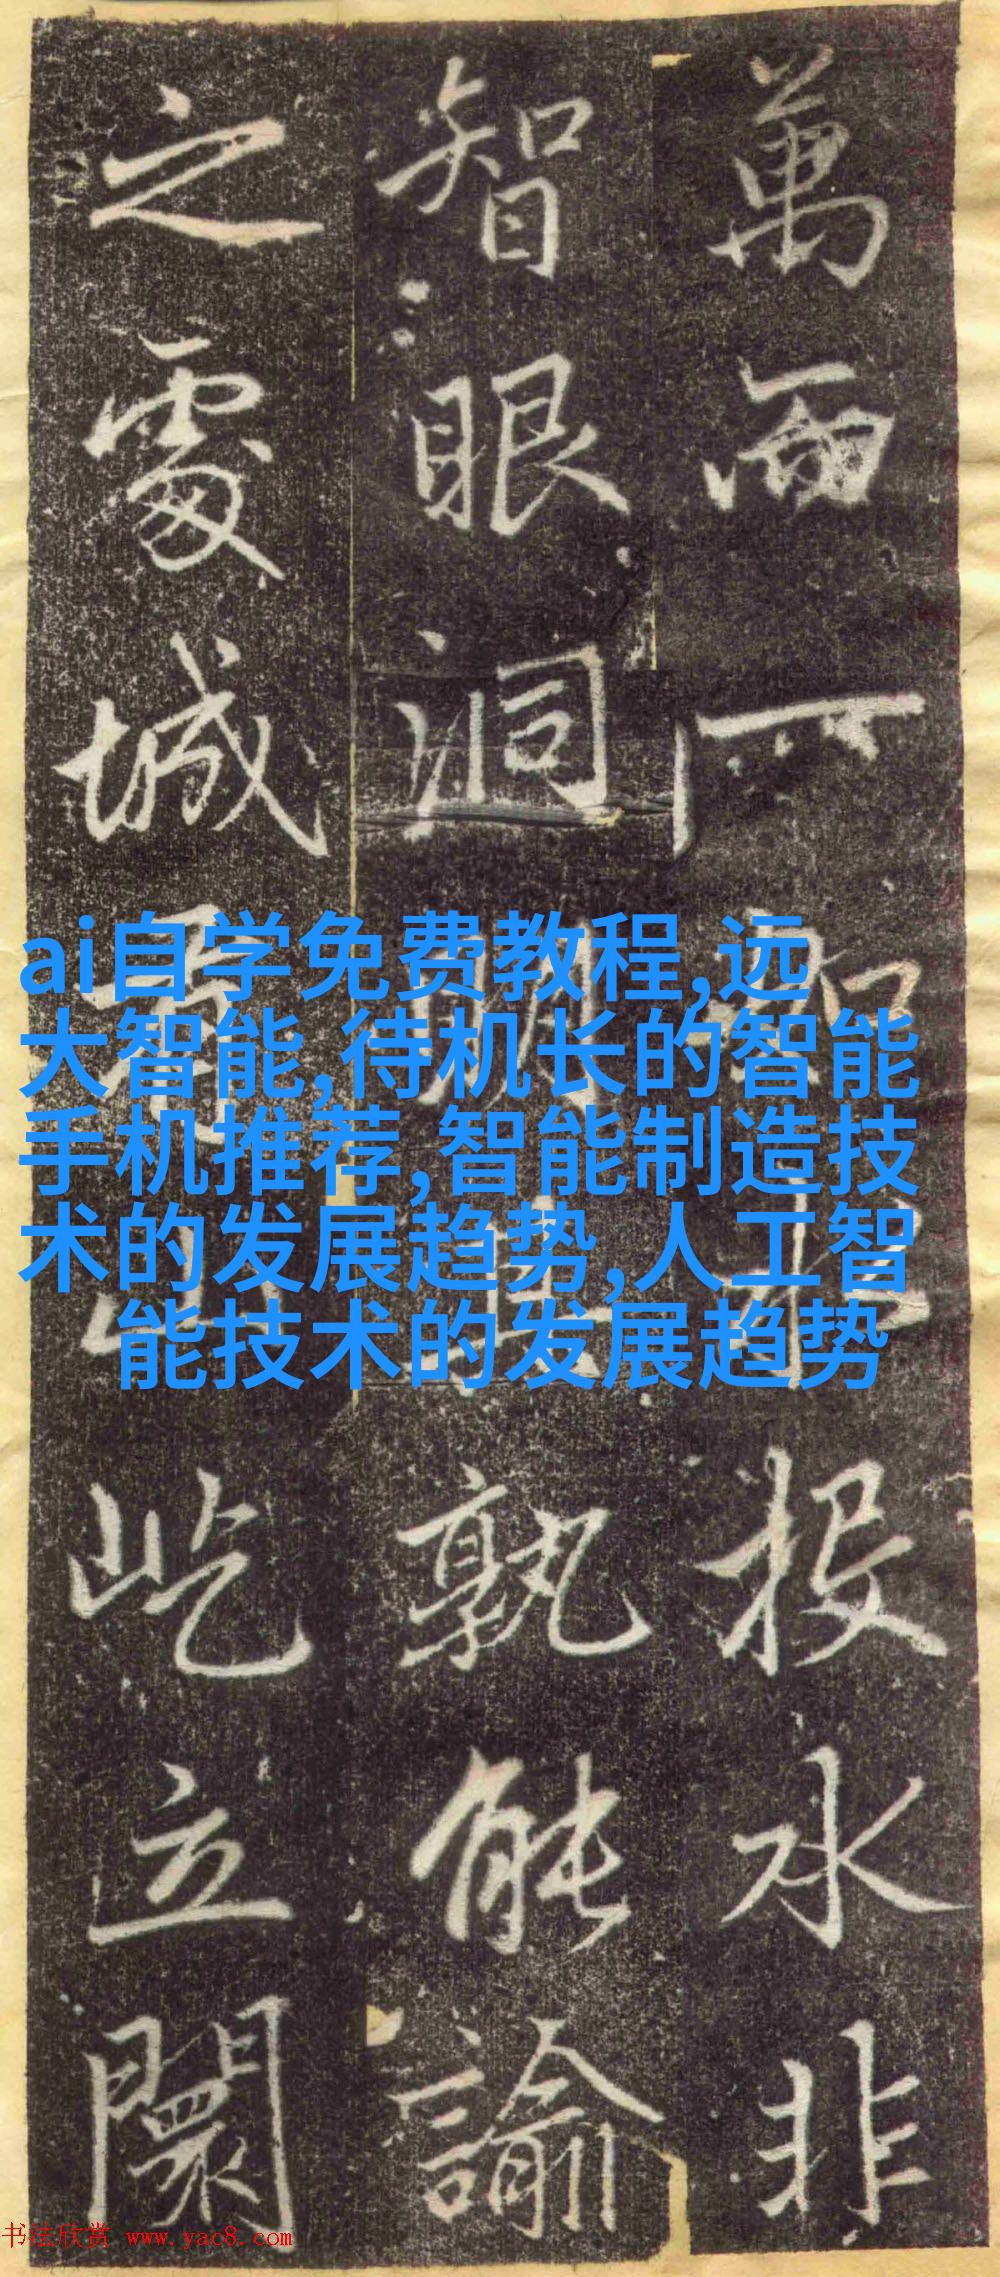 萬 投水非
智眼洞明 孰能諭
之處城 屹立闤
ai自学免费教程,远
大智能,待机长的智能
手机推荐,智能制造技
术的发展趋势,人工智
能技术的发展趋势
书法欣赏 www.yac8.com